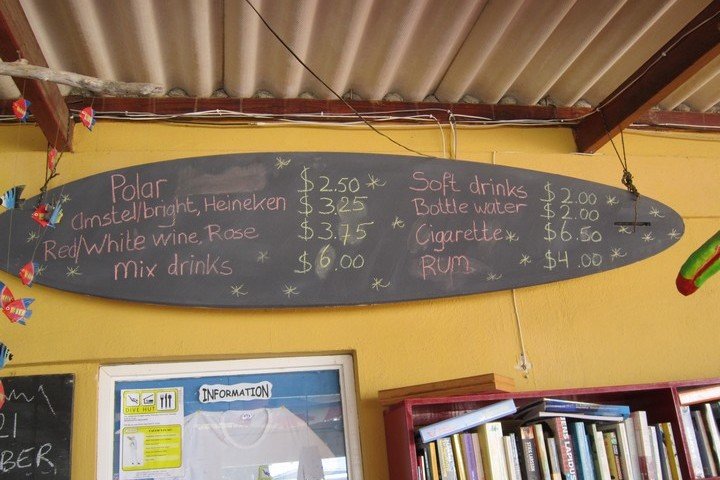 Polar $2.50
Amstel/bright, Heineken $3.25
Red/White wine, Rose $3.75
mix drinks $6.00
Soft drinks $2.00
Bottle water $2.00
Cigarette $6.50
RUM $4.00
INFORMATION
DIVE HUT
21
BER